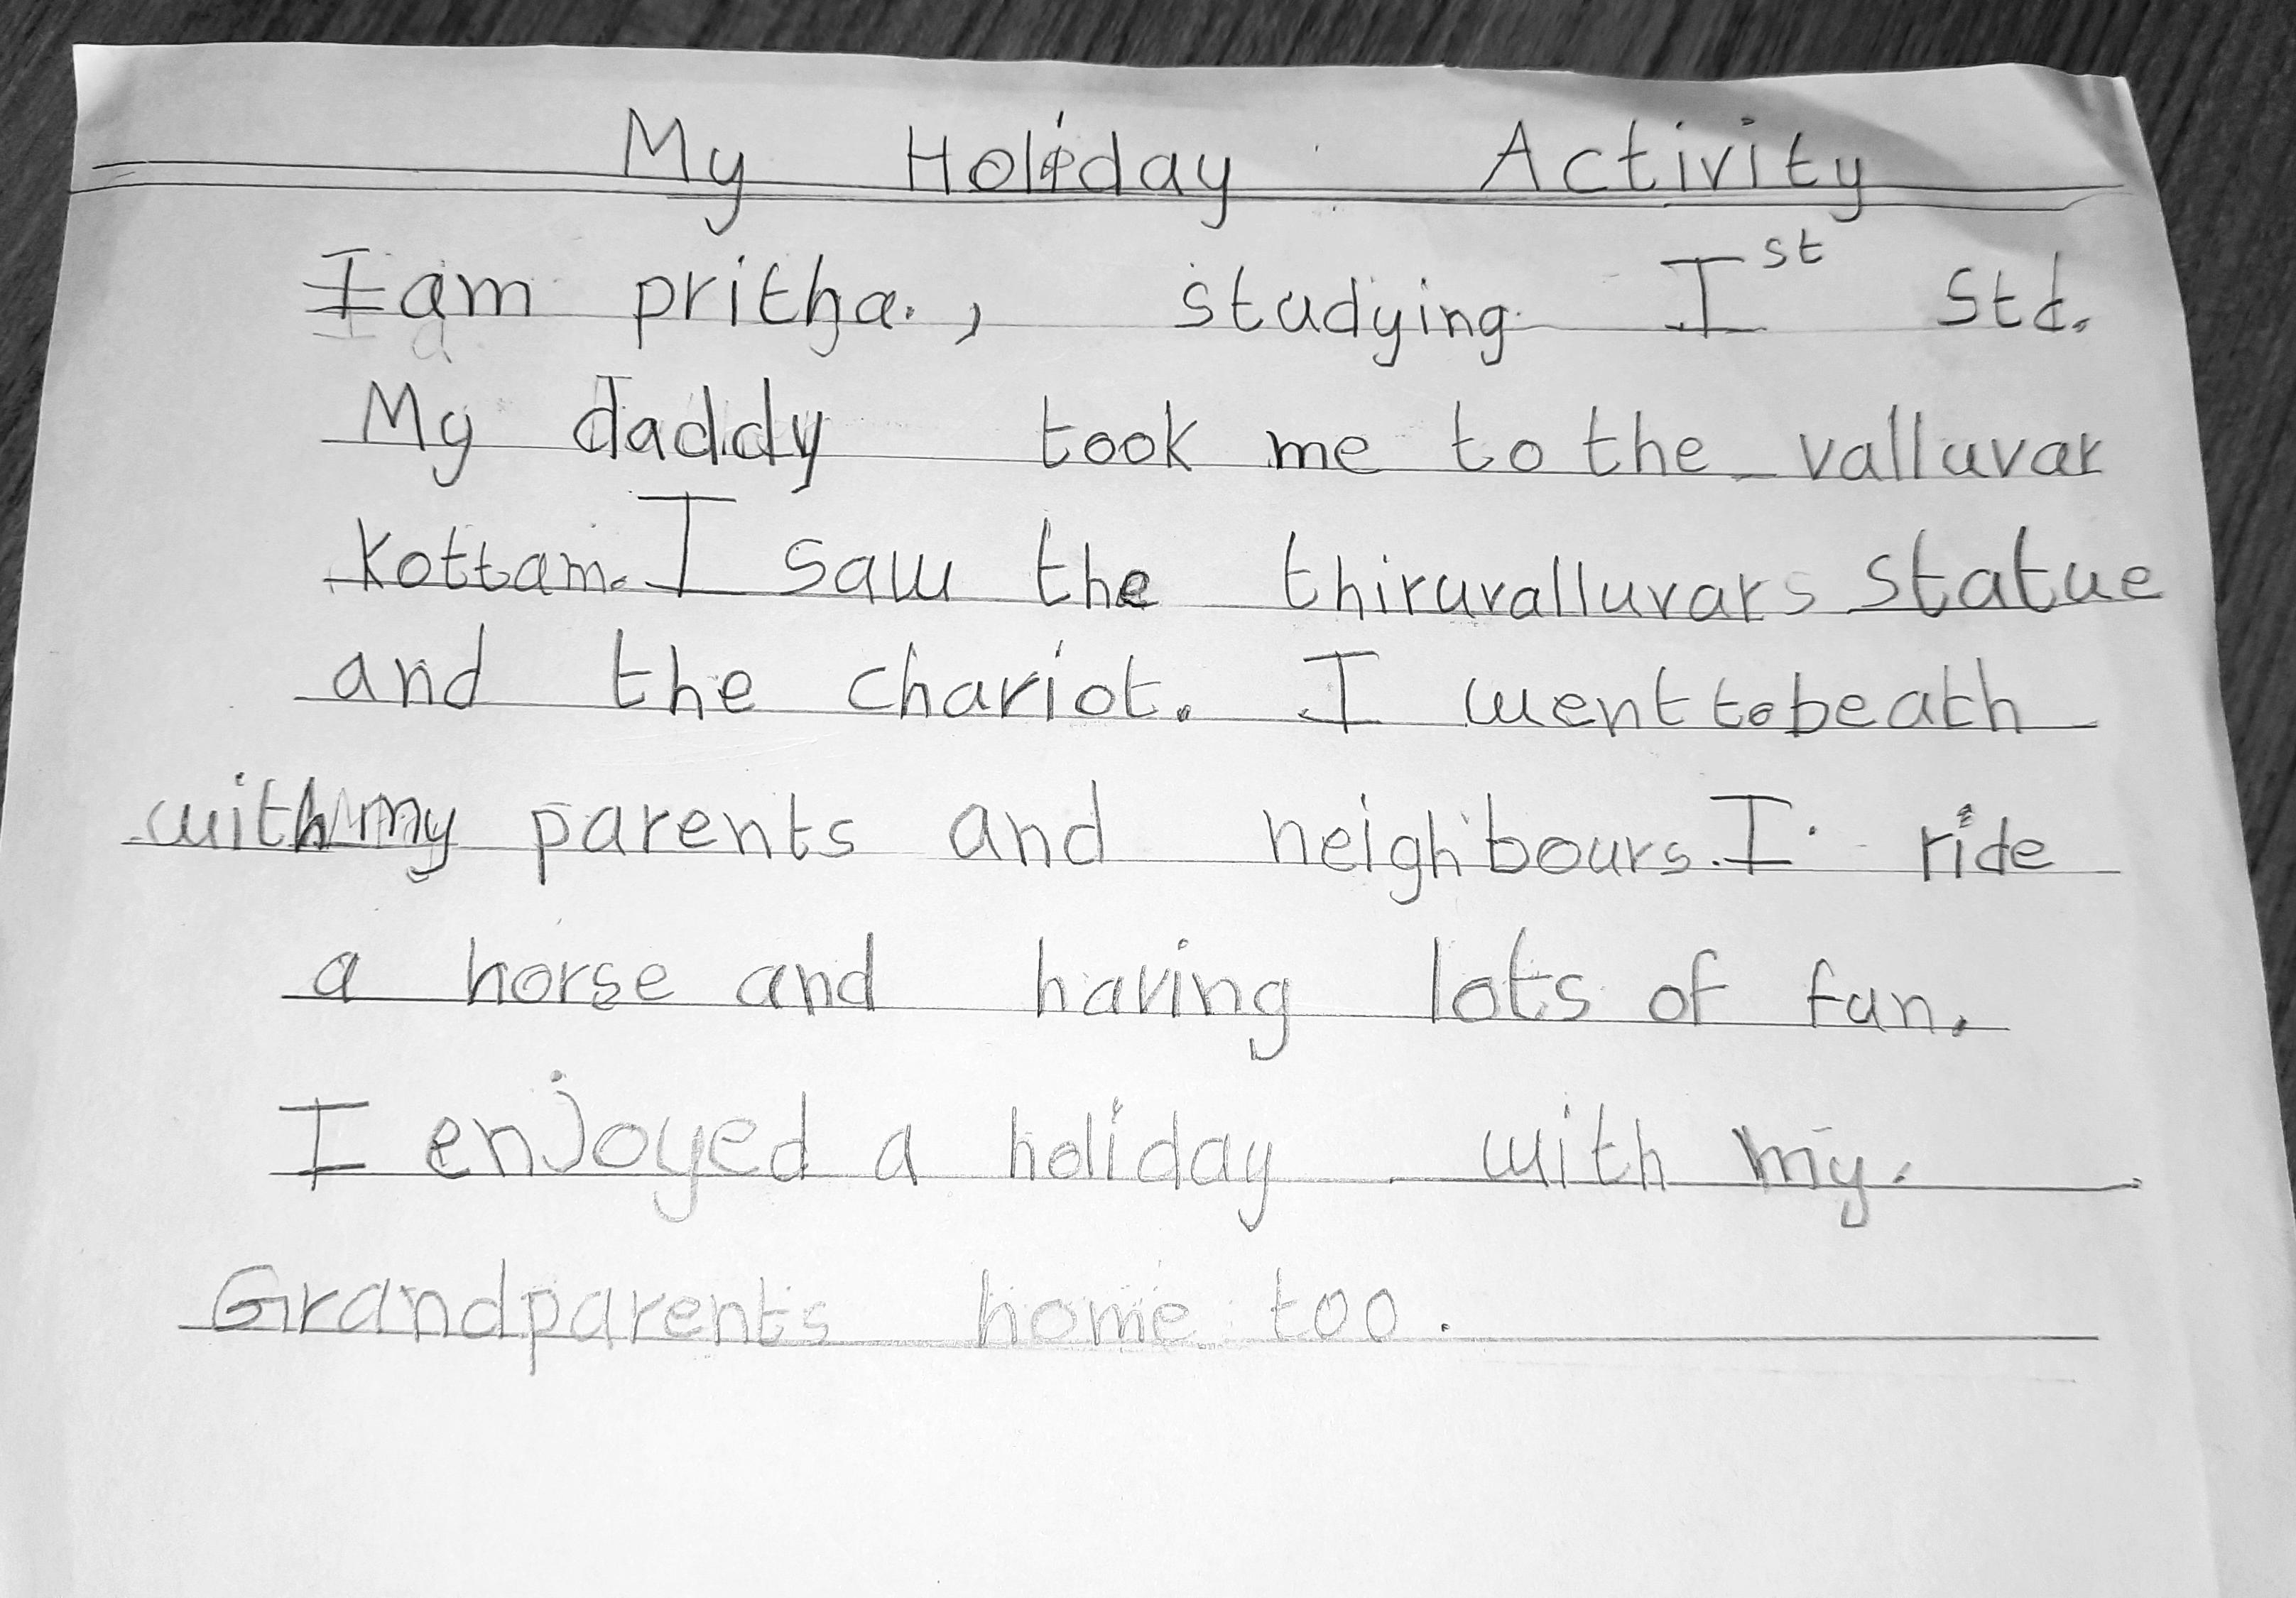 My Holiday Activity
I am pritha., studying Ist std.
My daddy took me to the valluvar
Kottam. I saw the thiruvalluvars statue
and the chariot. I went to beath
with my parents and neighbours. I ride
a horse and having lots of fun.
I enjoyed a holiday with my.
Grandparents home too.